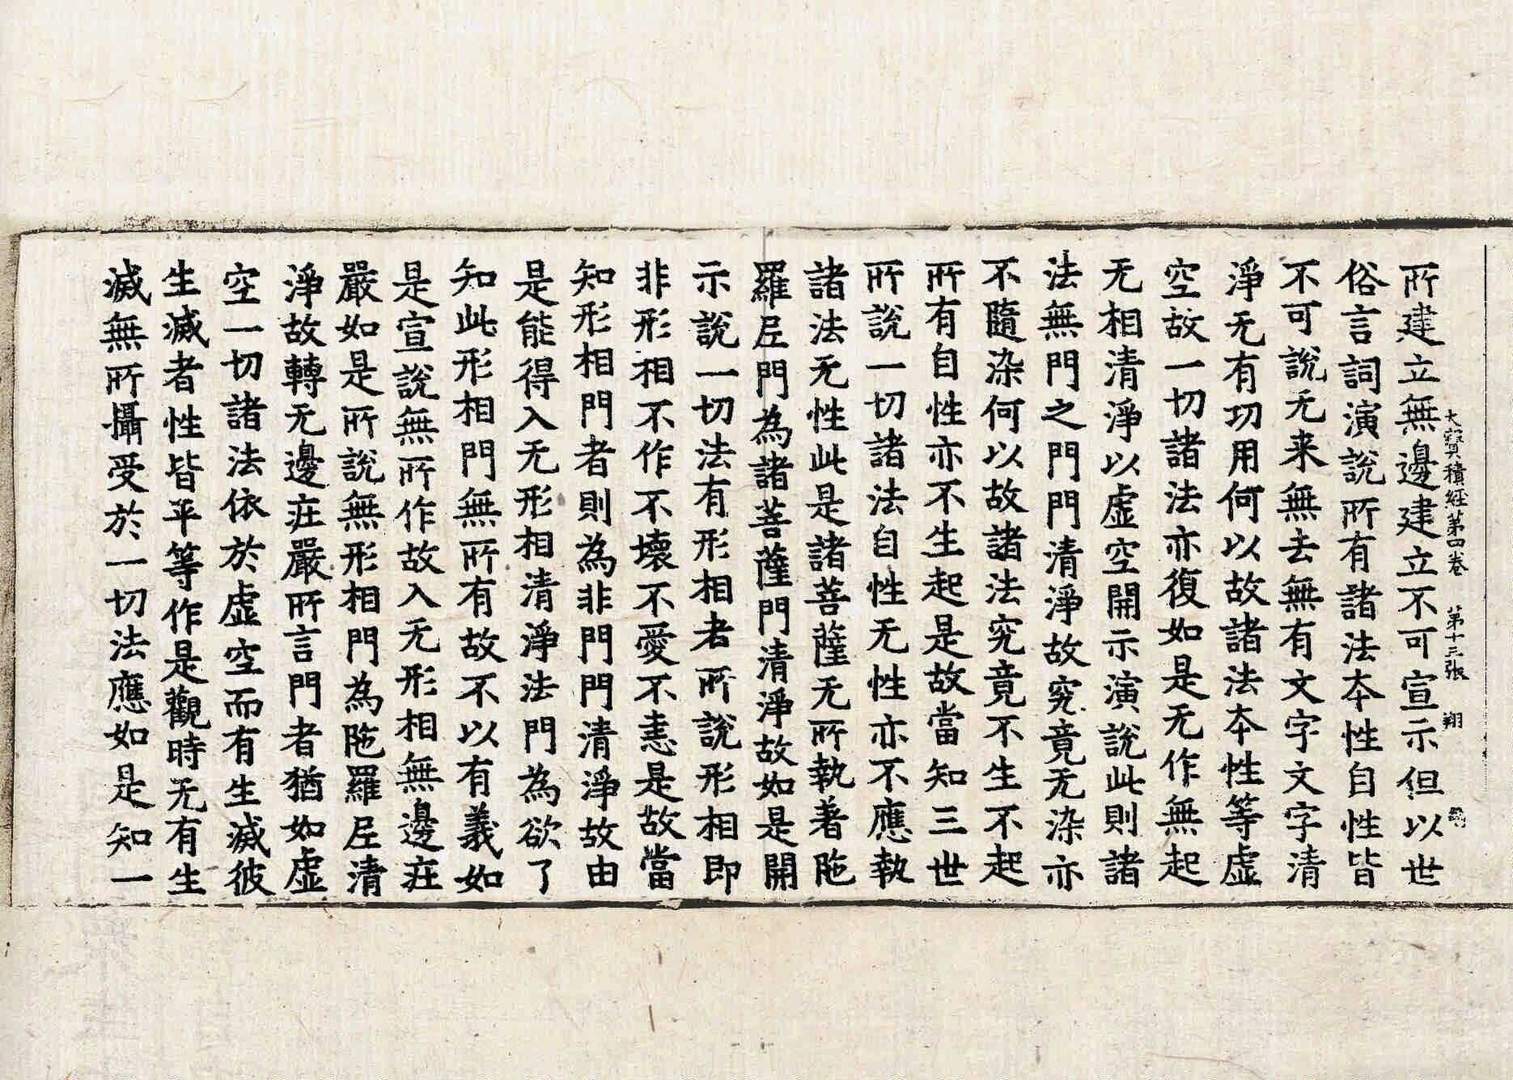 大寶積經第四卷　第十三張　翔
所建立無邊建立不可宣示但以世
俗言詞演說所有諸法本性自性皆
不可說无来無去無有文字文字清
淨无有功用何以故諸法本性等虛
空故一切諸法亦復如是无作無起
无相清淨以虛空開示演說此則諸
法無門之門門清淨故究竟无染亦
不隨染何以故諸法究竟不生不起
所有自性亦不生起是故當知三世
所說一切諸法自性无性亦不應執
諸法无性此是諸菩薩无所執著陁
羅尼門為諸菩薩門清淨故如是開
示說一切法有形相者所說形相即
非形相不作不壞不愛不恚是故當
知形相門者則為非門門清淨故由
是能得入无形相清淨法門為欲了
知此形相門無所有故不以有義如
是宣說無所作故入无形相無邊莊
嚴如是所說無形相門為陁羅尼清
淨故轉无邊莊嚴所言門者猶如虛
空一切諸法依於虛空而有生滅彼
生滅者性皆平等作是觀時无有生
滅無所攝受於一切法應如是知一